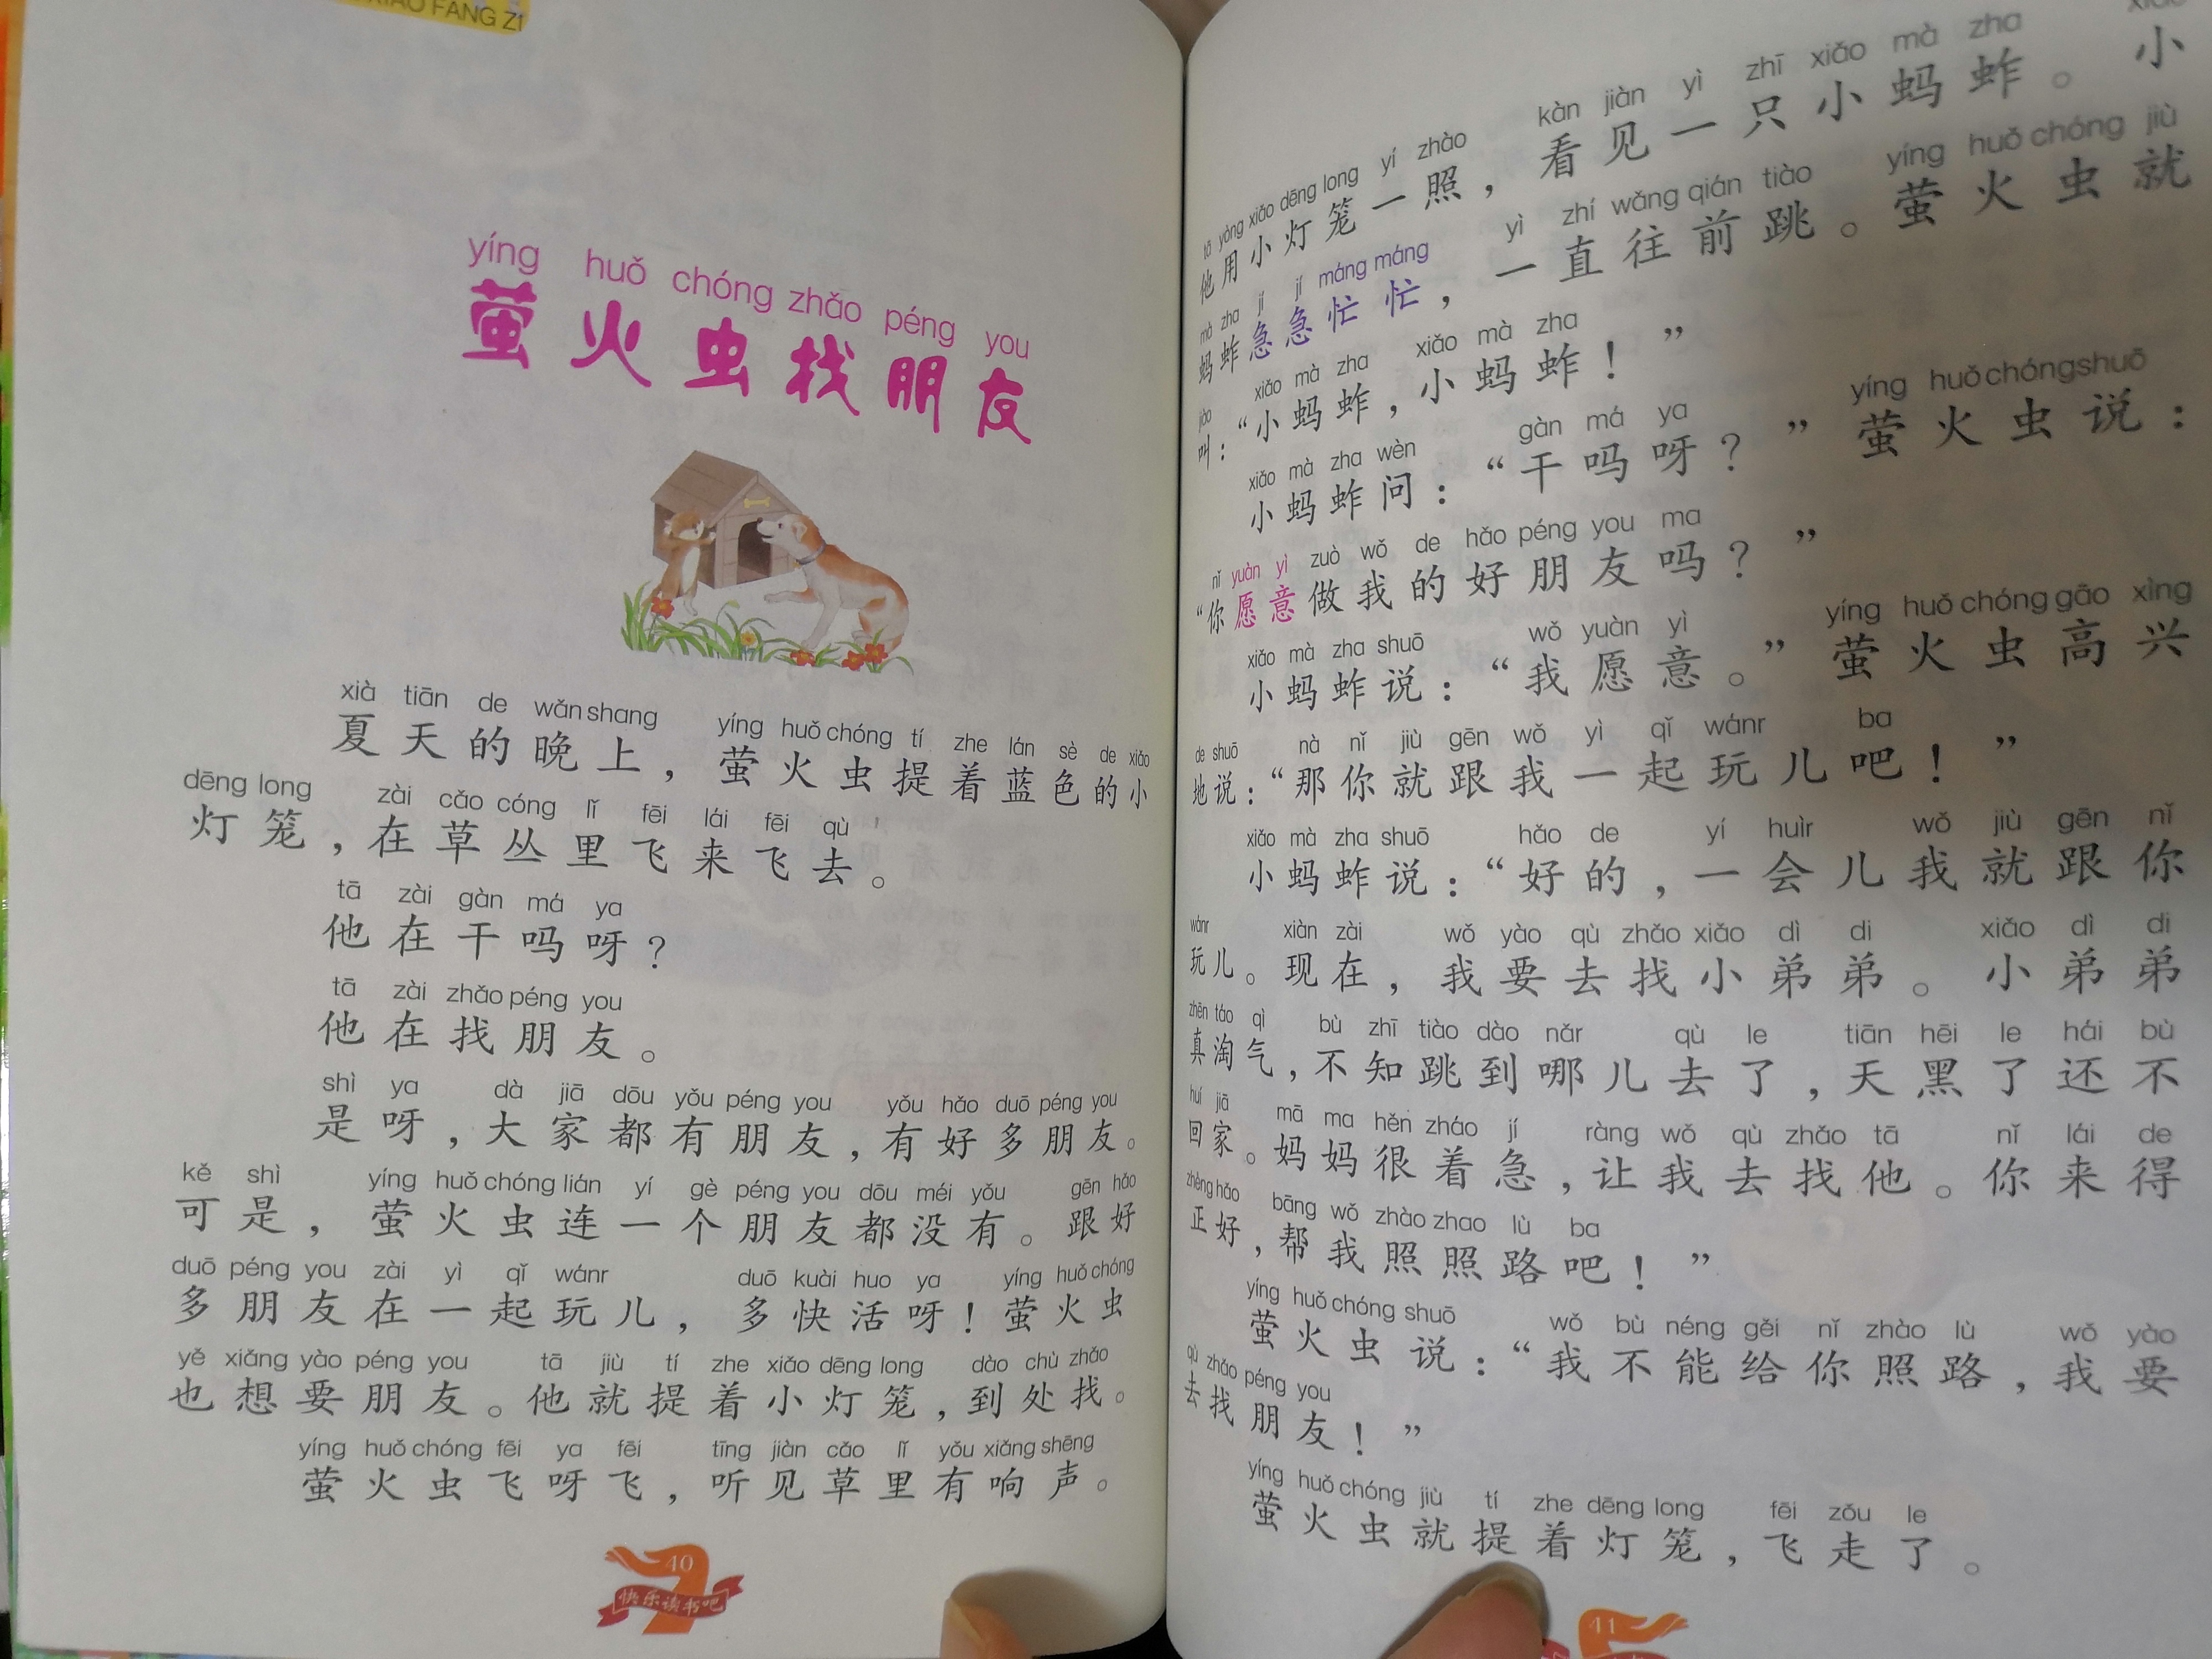 XIAO FANG ZI
yíng huǒ chóng zhǎo péng you
萤火虫找朋友
xià tiān de wǎn shang yíng huǒ chóng tí zhe lán sè de xiǎo
夏天的晚上，萤火虫提着蓝色的小
dēng long zài cǎo cóng lǐ fēi lái fēi qù
灯笼，在草丛里飞来飞去。
tā zài gàn má ya
他在干吗呀？
tā zài zhǎo péng you
他在找朋友。
shì ya dà jiā dōu yǒu péng you yǒu hǎo duō péng you
是呀，大家都有朋友，有好多朋友。
kě shì yíng huǒ chóng lián yí gè péng you dōu méi yǒu gēn hǎo
可是，萤火虫连一个朋友都没有。跟好
duō péng you zài yì qǐ wánr duō kuài huo ya yíng huǒ chóng
多朋友在一起玩儿，多快活呀！萤火虫
yě xiǎng yào péng you tā jiù tí zhe xiǎo dēng long dào chù zhǎo
也想要朋友。他就提着小灯笼，到处找。
yíng huǒ chóng fēi ya fēi tīng jiàn cǎo lǐ yǒu xiǎng shēng
萤火虫飞呀飞，听见草里有响声。
40
快乐读书吧
tā yòng xiǎo dēng long yí zhào kàn jiàn yì zhī xiǎo mà zha
他用小灯笼一照，看见一只小蚂蚱。小
mà zha jí jí máng máng yì zhí wǎng qián tiào yíng huǒ chóng jiù
蚂蚱急急忙忙，一直往前跳。萤火虫就
jiào xiǎo mà zha xiǎo mà zha
叫：“小蚂蚱，小蚂蚱！”
xiǎo mà zha wèn gàn má ya yíng huǒ chóng shuō
小蚂蚱问：“干吗呀？”萤火虫说：
nǐ yuàn yì zuò wǒ de hǎo péng you ma
“你愿意做我的好朋友吗？”
xiǎo mà zha shuō wǒ yuàn yì yíng huǒ chóng gāo xìng
小蚂蚱说：“我愿意。”萤火虫高兴
de shuō nà nǐ jiù gēn wǒ yì qǐ wánr ba
地说：“那你就跟我一起玩儿吧！”
xiǎo mà zha shuō hǎo de yí huìr wǒ jiù gēn nǐ
小蚂蚱说：“好的，一会儿我就跟你
wánr xiàn zài wǒ yào qù zhǎo xiǎo dì di xiǎo dì di
玩儿。现在，我要去找小弟弟。小弟弟
zhēn táo qì bù zhī tiào dào nǎr qù le tiān hēi le hái bù
真淘气，不知跳到哪儿去了，天黑了还不
huí jiā mā ma hěn zháo jí ràng wǒ qù zhǎo tā nǐ lái de
回家。妈妈很着急，让我去找他。你来得
zhèng hǎo bāng wǒ zhào zhao lù ba
正好，帮我照照路吧！”
yíng huǒ chóng shuō wǒ bù néng gěi nǐ zhào lù wǒ yào
萤火虫说：“我不能给你照路，我要
qù zhǎo péng you
去找朋友！”
yíng huǒ chóng jiù tí zhe dēng long fēi zǒu le
萤火虫就提着灯笼，飞走了。
41